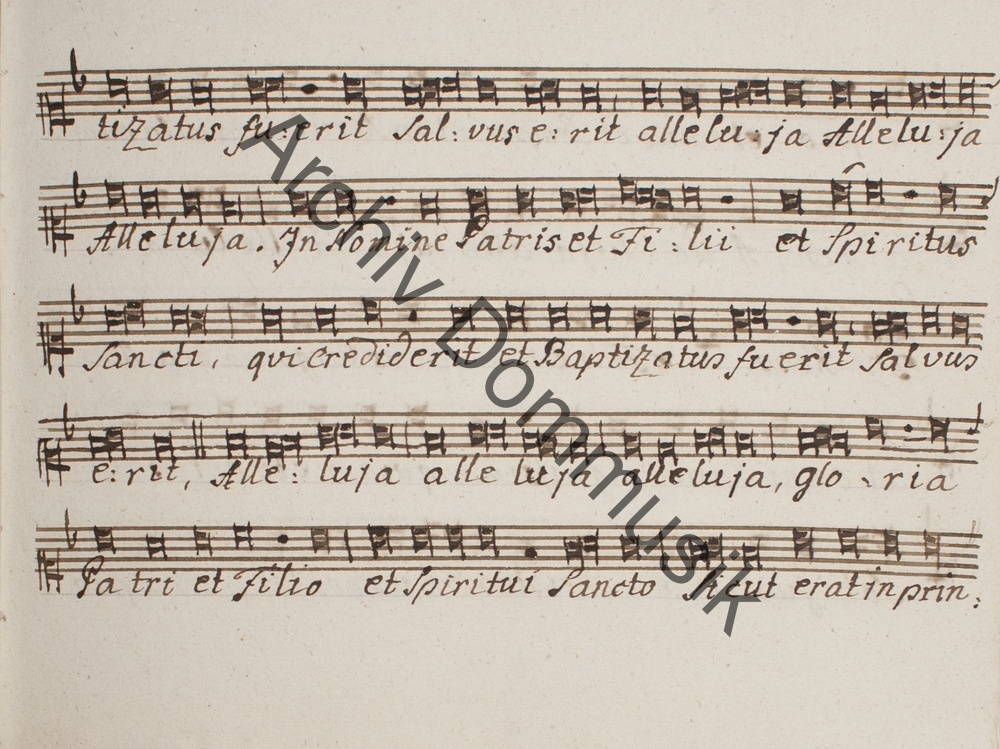 tizatus fu:erit Sal:vus e:rit allelu:ja Allelu:ja
Alleluja. In Nomine Patris et Fi:lii et Spiritus
Sancti, qvi Crediderit et Baptizatus fuerit Salvus
e:rit, Alle:luja alle luja alleluja, glo-ria
Patri et Filio et Spiritui Sancto Sicut erat in prin:
Archiv Dommusik